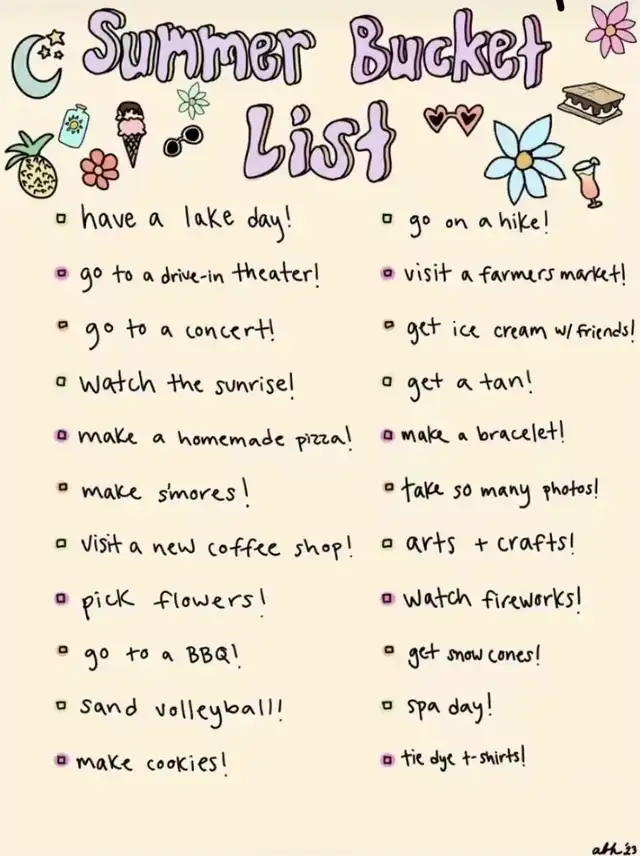 Summer Bucket
List
have a lake day!
go to a drive-in theater!
go to a concert!
watch the sunrise!
make a homemade pizza!
make s'mores!
visit a new coffee shop!
pick flowers!
go to a BBQ!
sand volleyball!
make cookies!
go on a hike!
visit a farmers market!
get ice cream w/ friends!
get a tan!
make a bracelet!
take so many photos!
arts + crafts!
watch fireworks!
get snow cones!
spa day!
tie dye t-shirts!